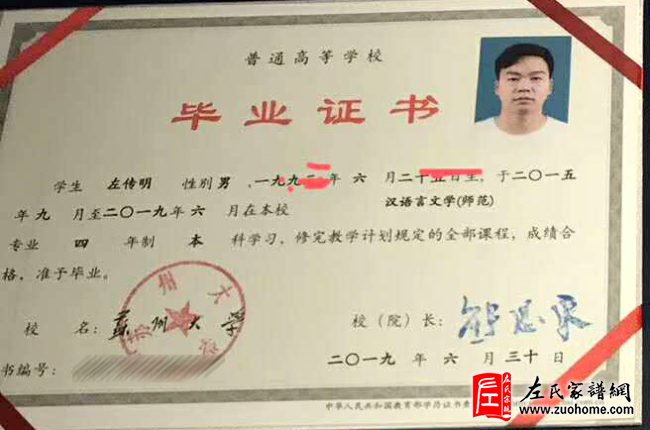 普通高等学校
毕业证书
学生 左传明 性别 男 ,一九九二年 六 月二十五日生,于二〇一五
年 九 月至二〇一九年 六 月在本校 汉语言文学(师范)
专业 四 年制 本 科学习,修完教学计划规定的全部课程,成绩合
格,准予毕业。
苏州大学
校 名: 苏州大学 校(院)长:
二〇一九 年 六 月 三十 日
书编号:
中华人民共和国教育部学历证书查
左氏家谱網
www.zuohome.com